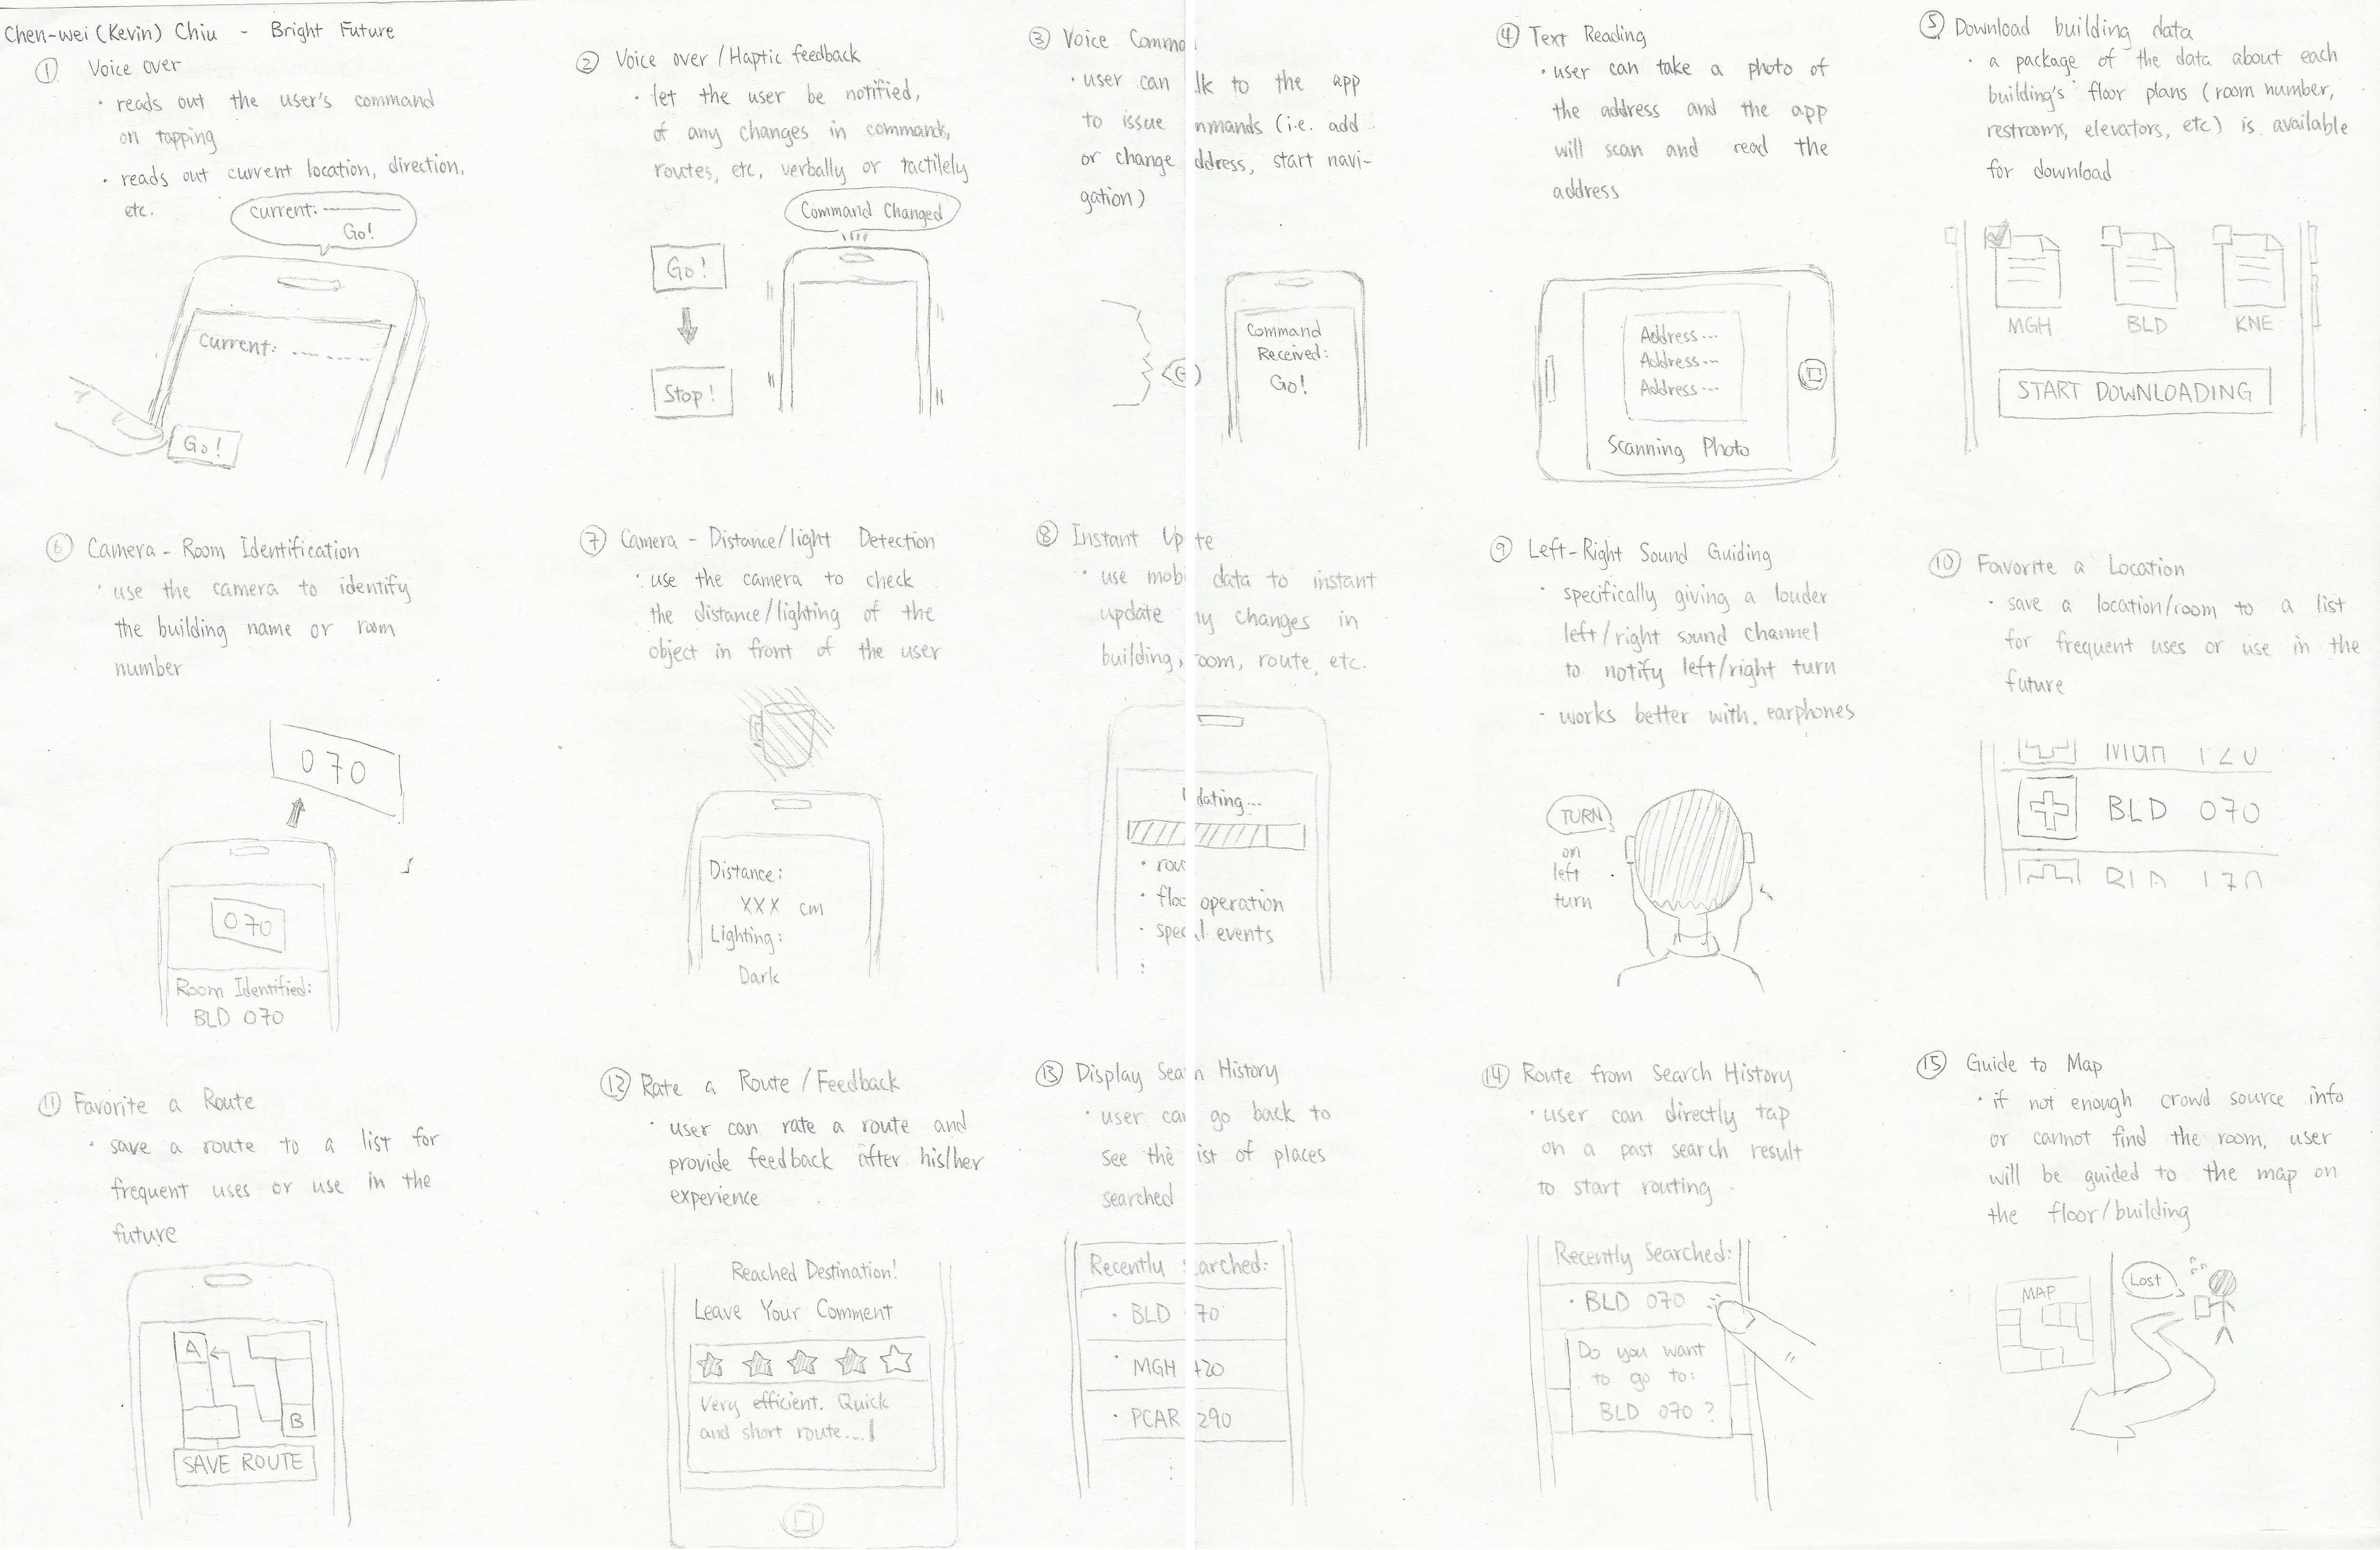 Chen-wei (Kevin) Chiu - Bright Future
① Voice over
· reads out the user's command
on tapping
· reads out current location, direction,
etc.
current:
Go!
current: --- --- ---
Go!
② Voice over / Haptic feedback
· let the user be notified,
of any changes in commands,
routes, etc, verbally or tactilely
Command Changed
Go!
Stop!
③ Voice Comma
· user can lk to the app
to issue mmands (i.e. add
or change ddress, start navi-
gation)
Command
Received:
Go!
④ Text Reading
· user can take a photo of
the address and the app
will scan and read the
address
Address...
Address...
Address...
Scanning Photo
⑤ Download building data
· a package of the data about each
building's floor plans (room number,
restrooms, elevators, etc) is available
for download
MGH BLD KNE
START DOWNLOADING
⑥ Camera - Room Identification
· use the camera to identify
the building name or room
number
070
070
Room Identified:
BLD 070
⑦ Camera - Distance/light Detection
· use the camera to check
the distance/lighting of the
object in front of the user
Distance:
XXX cm
Lighting:
Dark
⑧ Instant Up te
· use mobi data to instant
update ny changes in
building, room, route, etc.
dating...
· rou
· floo operation
· spec l events
:
⑨ Left-Right Sound Guiding
· specifically giving a louder
left/right sound channel
to notify left/right turn
· works better with earphones
TURN
on
left
turn
⑩ Favorite a Location
· save a location/room to a list
for frequent uses or use in the
future
MGH 120
BLD 070
BLD 170
⑪ Favorite a Route
· save a route to a list for
frequent uses or use in the
future
A
B
SAVE ROUTE
⑫ Rate a Route / Feedback
· user can rate a route and
provide feedback after his/her
experience
Reached Destination!
Leave Your Comment
Very efficient. Quick
and short route...
⑬ Display Sea h History
· user can go back to
see the ist of places
searched
Recently earched:
· BLD 70
· MGH 420
· PCAR 290
:
⑭ Route from Search History
· user can directly tap
on a past search result
to start routing
Recently Searched:
· BLD 070
Do you want
to go to:
BLD 070 ?
⑮ Guide to Map
· if not enough crowd source info
or cannot find the room, user
will be guided to the map on
the floor/building
MAP
Lost